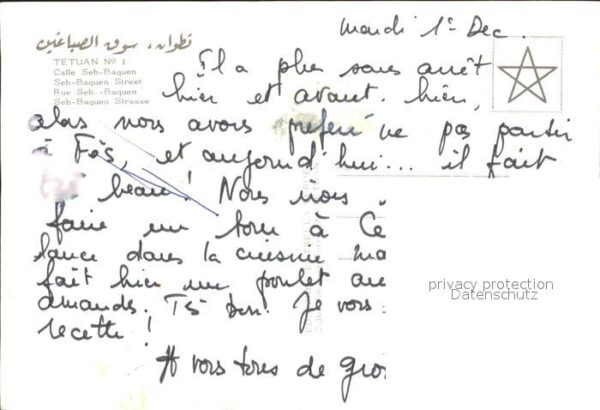 mardi 1er Dec.
تطوان، سوق الصباغين
TETUAN Nº 1
Calle Seb-Baquen
Seb-Baquen Street
Rue Seb.-Baquen
Seb-Baquen Strasse
Il a plu sans arrêt
hier et avant-hier,
alors nous avons préféré ne pas partir
à Fès, et aujourd'hui... il fait
beau! Nous nous
faire un tour à Ce
lance dans la cuisine ma
fait hier un poulet au
amandes. TS bon. Je vous
recette!
A vous tous de gros
privacy protection
Datenschutz